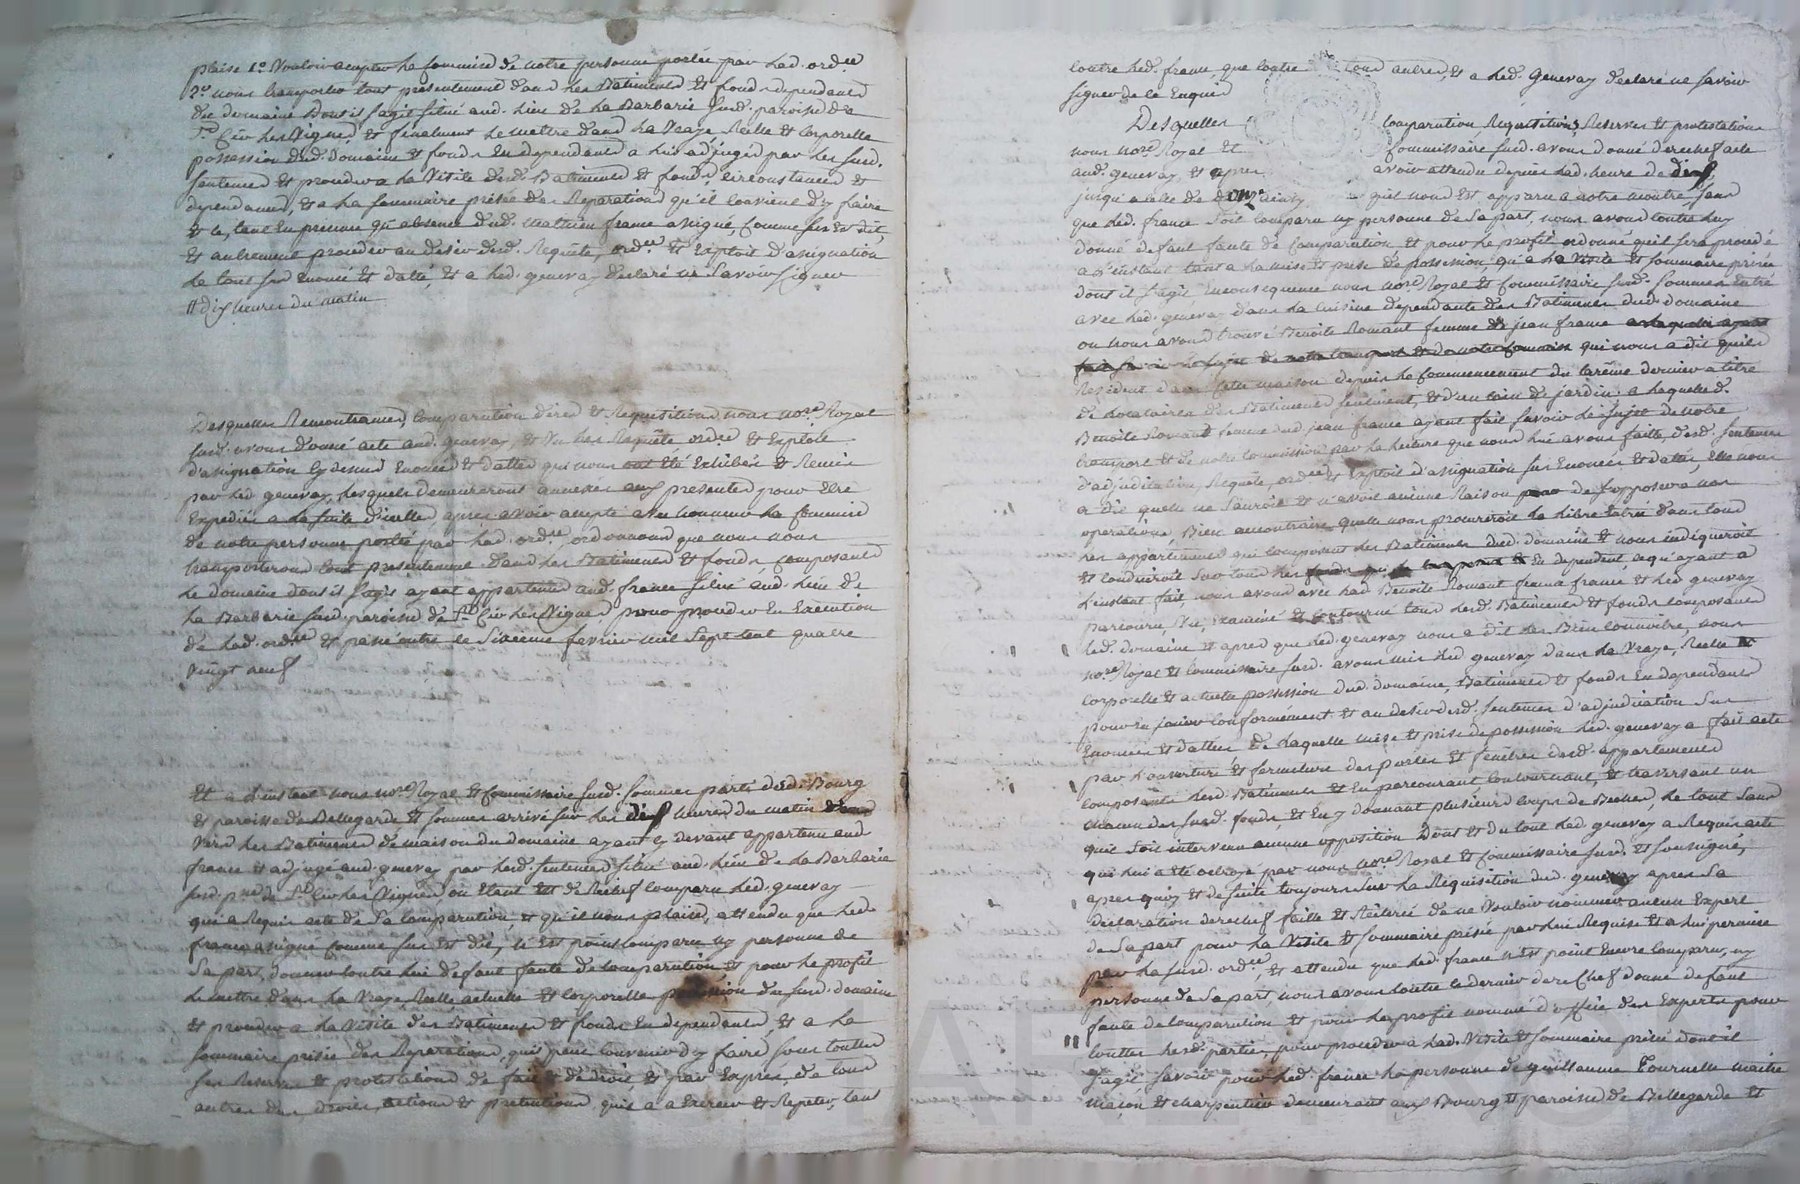 plaise 1o. Vouloir accepter la commission de notre personne portée par lad. ordce
2o. nous transporter tout présentement dans les Batiments et fonds dependants
du domaine dont il sagit situé aud. lieu de la Barbarie susd. paroisse de
St. Cir les Vignes, et finalement le mettre dans la Vraye Réelle et Corporelle
possession dud. domaine et fonds En dependants a luy adjugés par les susd.
sentences et proceder a la Visite desd. Batiments et fonds, circonstances et
dependances, et a la sommaire prisée des Reparations qu'il convient d'y faire
et ce, tant En presence qu'absence dud. mathieu france assigné, comme sus est dit,
et autrement proceder au desir desd. Requête, ordce et Exploit d'assignation
le tout sus Enoncé et datté, et a led. genevay declaré ne savoir signer
// dix heures du matin
Desquelles Remontrances, Comparution dires et Requisitions nous nore. Royal
susd. avons donné acte aud. genevay, et Vu les Requête ordce et Exploit
d'assignation cy dessus Enoncés et dattés qui nous ont été Exhibés et Remis
par led. genevay, lesquels demeureront annexés aux presentes pour Etre
Expediés a la suite d'icelles, apres avoir accepté avec honneur la commission
de notre personne portée par lad. ordce, ordonnons que nous nous
transporterons tout presentement dans les Batiments et fonds composants
le domaine dont il s'agit ayant appartenu aud. france situé aud. lieu de
la Barbarie susd. paroisse de St. Cir les Vignes, pour proceder En Execution
de lad. ordce et par outre le Sixieme fevrier mil Sept Cent quatre
vingt neuf
Et a l'instant nous nore. Royal et commissaire susd. sommes partis dud. Bourg
et paroisse de Bellegarde et sommes arrivé sur les dix heures du matin
Vers les Batiments de maison du domaine ayant cy devant appartenu aud.
france et adjugé aud. genevay par lesd. sentences situé aud. lieu de la Barbarie
susd. psse de St. Cir les Vignes, ou Etant Est de Rechef comparu led. genevay
qui a Requis acte de sa comparution, et qu'il nous plaise, attendu que led.
france assigné comme sus est dit, n'est point comparu ny personne de
sa part, donner contre lui défaut faute de comparution et pour le profit
le mettre dans la Vraye Réelle actuelle et corporelle possession du susd. domaine
et proceder a la Visite des Batiments et fonds En dependants, et a la
sommaire prisée des Reparations, qu'il peut convenir d'y faire sous toutes
ses Reserves et protestations de fait et de droit, et par Exprès, de tous
autres ses droits, actions et pretentions, qu'il a a Exercer et Repeter, tant
contre led. france que contre tous autres, et a led. Genevay declaré ne savoir
signer de ce Enquis
Desquelles Comparution Requisitions, Reserves et protestations
nous nore. Royal et commissaire susd. avons donné derechef acte
aud. genevay, et apres avoir attendu depuis lad. heure de dix
jusqu'a celle de onze qu'il nous est apparu a notre montre sans
que led. france soit comparu ny personne de sa part, nous avons contre luy
donné defaut faute de comparution et pour le profit ordonné qu'il sera procedé
a l'instant tant a la mise et prise de possession, qu'a la visite et sommaire prisée
dont il s'agit, En consequence nous nore. Royal et commissaire susd. sommes Entré
avec led. genevay dans la cuisine dependante des Batiments dud. domaine
ou nous avons trouvé Benoite Romant femme de jean france
qui nous a dit qu'ils
Resident dans cette maison depuis le commencement du careme dernier a titre
de locataires des Batiments seulement, et d'un coin de jardin. a laquelle d.
Benoite Romant femme dud. jean france ayant fait savoir le sujet de notre
transport et de notre commission par la lecture que nous lui avons faite, desd. sentences
d'adjudication, Requête, ordce et Exploit d'assignation sus Enoncés et dattés, Elle nous
a dit quelle ne sauroit et n'avoit aucune Raison de s'opposer a nos
operations, Bien aucontraire, quelle nous procureroit la libre Entrée dans tous
les appartements qui composent les Batiments dud. domaine et nous indiqueroit
et conduiroit sur tous les fonds En dependent, ce qu'ayant a
l'instant fait, nous avons avec lad. Benoite Romant femme france et led. genevay
parcouru Vu, Examiné et contourné tous lesd. Batiments et fonds composants
led. domaine et apres que led. genevay nous a dit les Bien connoitre, nous
nore. Royal et commissaire susd. avons mis led. genevay dans la Vraye, Réelle
corporelle et actuelle possession dud. domaine, Batiments et fonds En dependants
pour En jouir conformément et au desir desd. sentences d'adjudication sus
Enoncées et dattées de laquelle mise et prise de possession led. genevay a fait acte
par l'ouverture et fermeture des portes et fenêtres desd. appartements
composants lesd. Batiments et En parcourant contournant, et traversant un
chacun des susd. fonds, et En y donnant plusieurs coups de Beches, le tout sans
quil soit intervenu aucune opposition Dont et du tout led. genevay a Requis acte
qui lui a été octroyé par nous nore. Royal et commissaire susd. et soussigné,
apres quoy et de suite toujours sur la Requisition dud. genevay apres sa
declaration derechef faite et Réiterée de ne Vouloir nommer aucun Expert
de sa part pour la Visite et sommaire prisée par lui Requise et a lui permise
par la susd. ordce, et attendu que led. france n'est point Encore comparu, ny
personne de sa part, nous avons contre ce dernier de re Chef donné defaut
faute de comparution et pour le profit nommé d'office des Experts pour
toutes lesd. parties, pour proceder a lad. Visite et sommaire prisée dont il
s'agit savoir pour led. france la personne de guillaume Fournelle maitre
macon et charpentier demeurant aux Bourg et paroisse de Bellegarde et